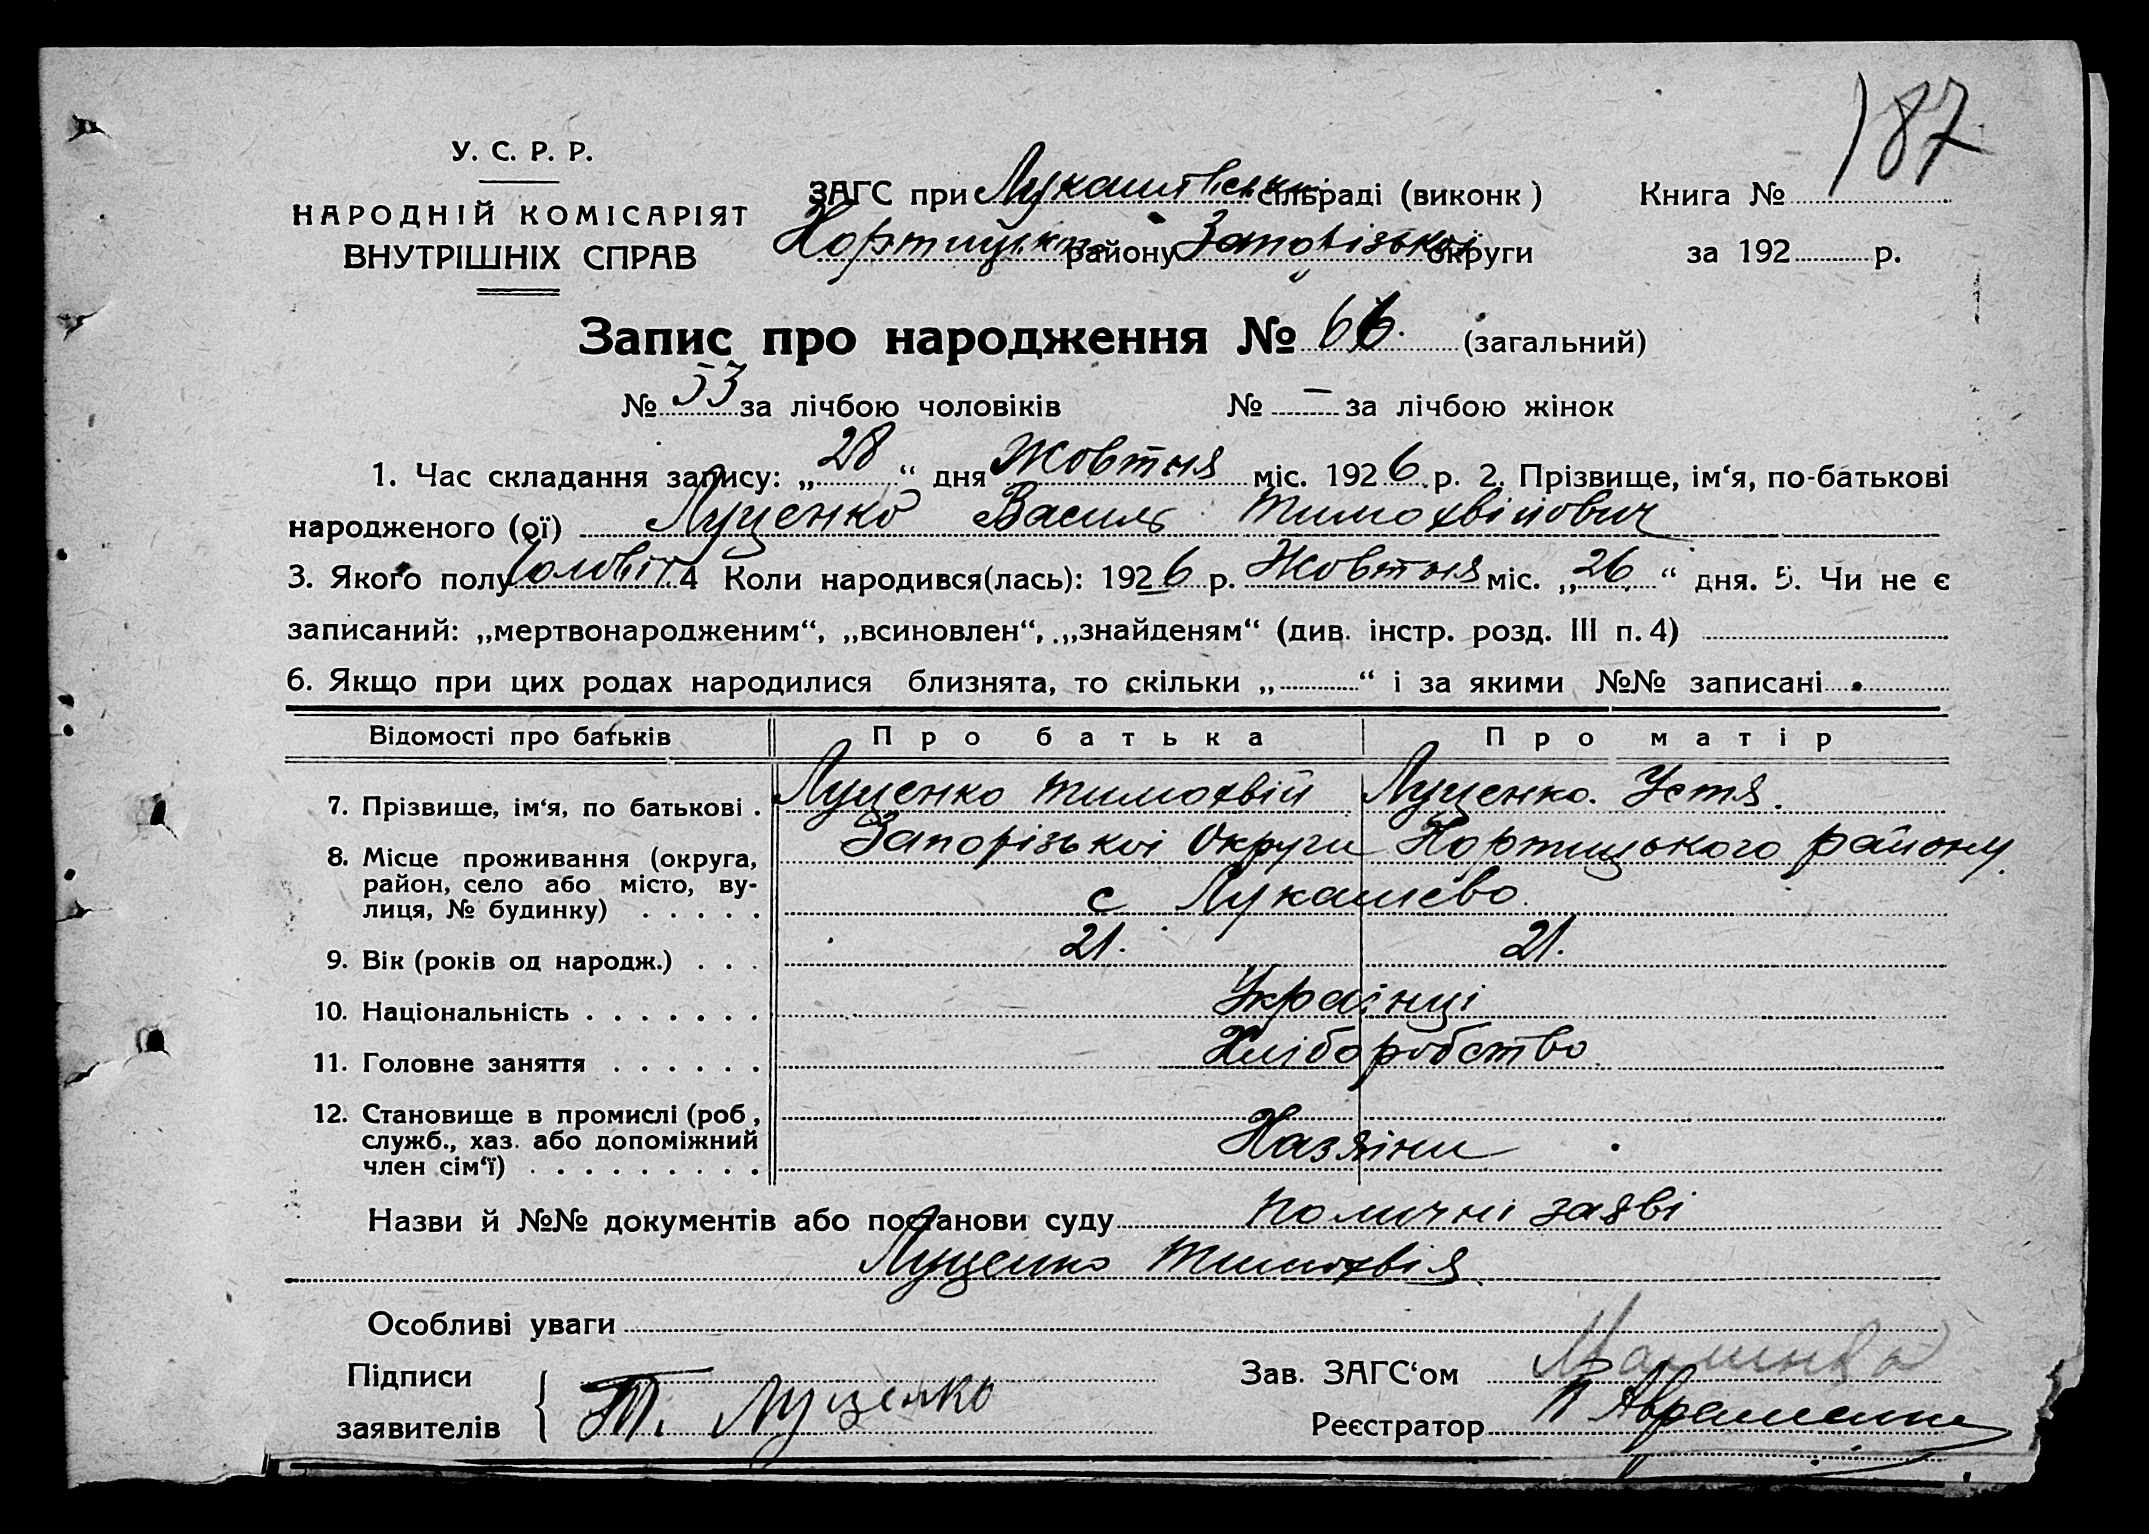 187
У. С. Р. Р.
НАРОДНІЙ КОМІСАРІЯТ
ВНУТРІШНІХ СПРАВ
ЗАГС при Лукашівськи сільраді (виконк ) Книга №
Хортицьк району Запорізької округи за 192 р.
Запис про народження № 66. (загальний)
№ 53 за лічбою чоловіків № — за лічбою жінок
1. Час складання запису: „ 28 “ дня Жовтня міс. 192 6 р. 2. Прізвище, ім‘я, по-батькові
народженого (ої) Луценко Василь Тимохвійович
3. Якого полу 4 Коли народився(лась): 192 6 р. Жовтня міс. „ 26 “ дня. 5. Чи не є
записаний: „мертвонародженим“, „всиновлен“, „знайденям“ (див. інстр. розд. III п. 4)
6. Якщо при цих родах народилися близнята, то скільки „ “ і за якими №№ записані
Відомості про батьків Про батька Про матір
7. Прізвище, ім‘я, по батькові . Луценко Тимохвій Луценко. Устя.
8. Місце проживання (округа, район, село або місто, ву-лиця, № будинку) . . . . . Запорізькоі Округи Хортицького району
с Лукашево.
9. Вік (років од народж.) . . . 21. 21.
10. Національність . . . . . . . Украінці
11. Головне заняття . . . . . . Хліборобство.
12. Становище в промислі (роб, служб., хаз. або допоміжний член сім‘ї) . . . . . . . . . Хазяіни
Назви й №№ документів або постанови суду заяві
Луценко Тимохвія
Особливі уваги
Підписи заявителів Т. Луценко
Зав. ЗАГС‘ом
Реєстратор П Авраменко